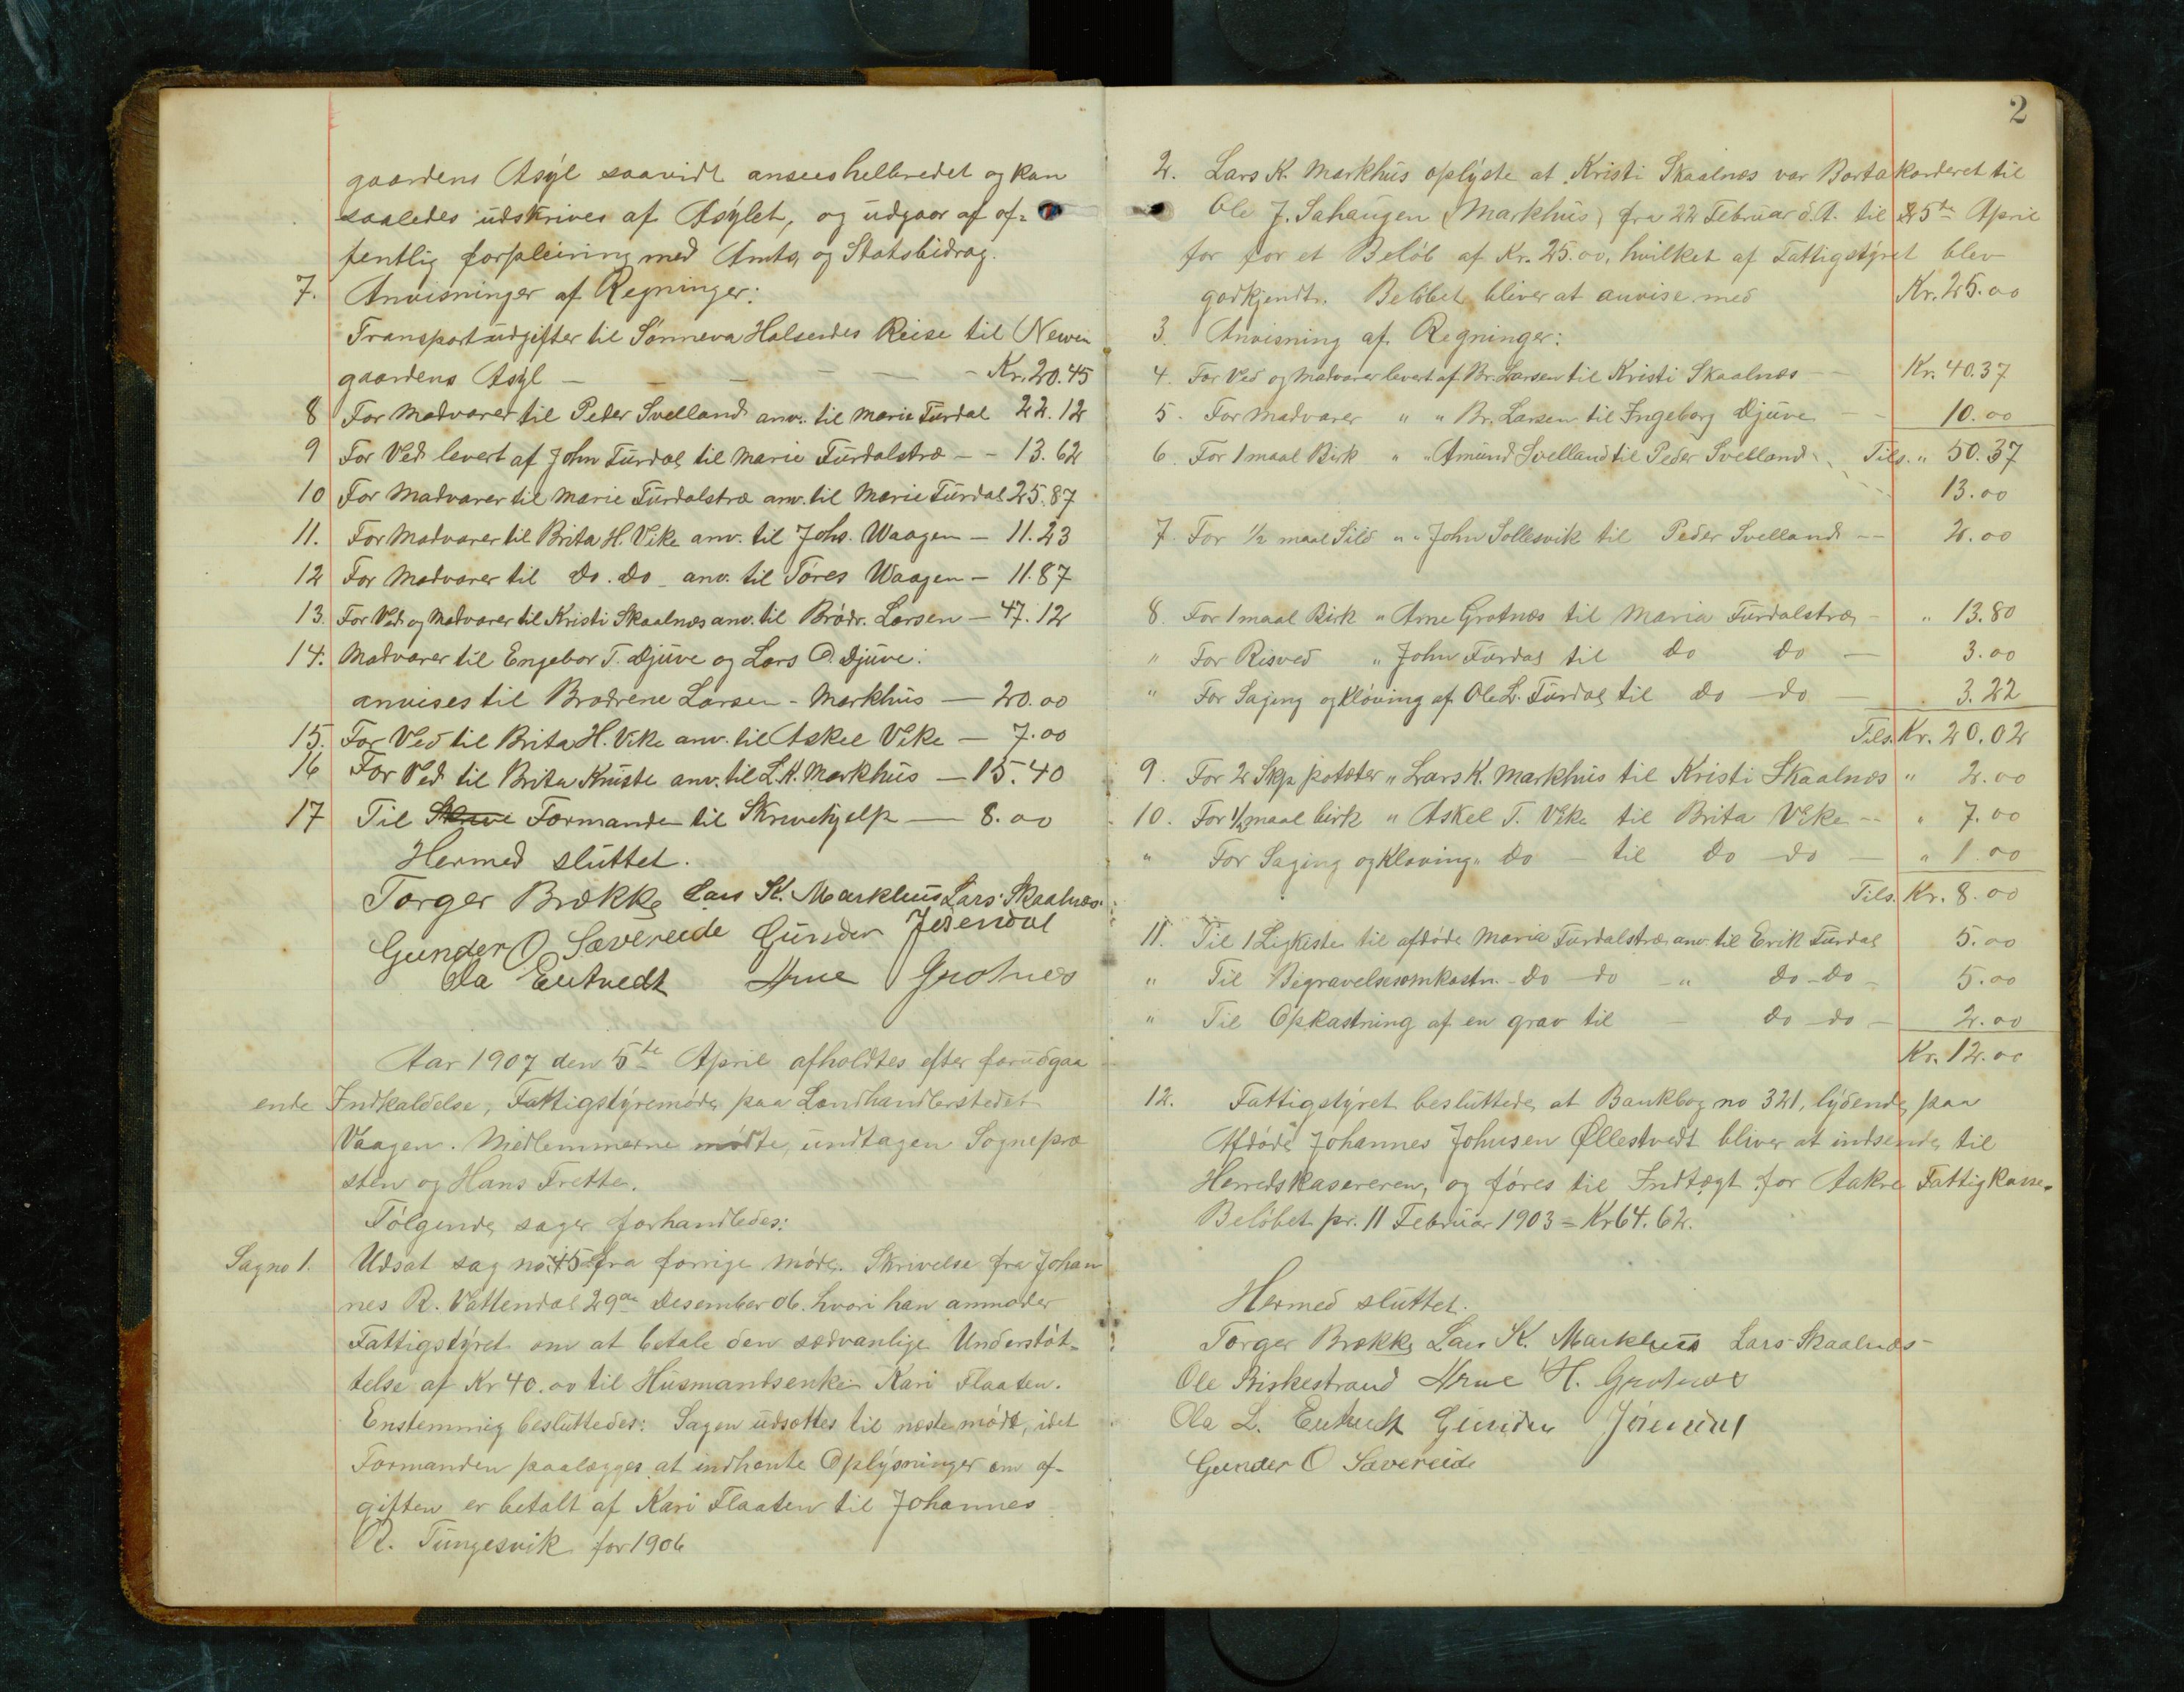 gaardens Asyl saavidt ansees helbredet og kan
saaledes udskrives af Asylet, og udgaar af of-
fentlig forpleining med Amts og Statsbidrag.
7. Anvisninger af Regninger:
Transportudgifter til Sønneva Halsendes Reise til Neven
gaardens Asyl - - - - - - Kr. 20.45
8 For Madvarer til Peder Svelland anv. til Marie Furdal 22.12
9 For Ved levert af John Furdal til Marie Furdalstræ - - 13.62
10 For Madvarer til Marie Furdalstræ anv. til Marie Furdal 25.87
11. For Madvarer til Brita H. Vike anv. til Johs. Waagen - 11.23
12 For Madvarer til do. do - anv. til Tøres Waagen - 11.87
13. For Ved og Madvarer til Kristi Skaalnæs anv. til Brødr. Larsen - 47.12
14. Madvarer til Engebor T. Djuve og Lars O. Djuve:
anvises til Brødrene Larsen - Markhus - 20.00
15. For Ved til Brita H. Vike anv. til Askel Vike - 7.00
16 For Ved til Brita Knuste anv. til L.K. Markhus - 15.40
17 Til Skrive Formanden til Skrivehjelp - 8.00
Hermed sluttet.
Torger Brække Lars K. Markhus Lars Skaalnæs.
Gunder O Sævereide Gunder Jøsendal
Ola Eutvedt Arne Grotnes
Aar 1907 den 5te April afholdtes efter forudgaa
ende Indkaldelse, Fattigstyremøde paa Landhandlerstedet
Vaagen. Medlemmerne mødte, undtagen Sognepræ
sten og Hans Frette.
Følgende sager forhandledes:
Sag no 1. Udsat sag no 15 fra forrige møde. Skrivelse fra Johan
nes R. Vattendal 29de Desember 06. hvori han anmoder
Fattigstyret om at betale den sædvanlige Understøt-
telse af Kr 40.00 til Husmandsenke Kari Flaaten.
Enstemmig besluttedes: Sagen udsættes til neste møde, idet
Formanden paalægges at indhente Oplysninger om af-
giften er betalt af Kari Flaaten til Johannes
R. Tungesvik for 1906
2
2. Lars K. Markhus oplyste at Kristi Skaalnæs var Bortakorderet til
Ole J. Sahaugen (Markhus) fra 22 Februar d.A. til 25de April
for for et Beløb af Kr. 25.00, hvilket af Fattigstyret blev
godkjendt. Beløbet bliver at anvise med Kr. 25.00
3. Anvisning af Regninger:
4. For Ved og Madvarer levert af Br. Larsen til Kristi Skaalnæs - Kr. 40.37
5. For Madvarer " " Br. Larsen til Ingeborg Djuve - - 10.00
6. For 1 maal Birk " " Amund Svelland til Peder Svelland Tils. " 50.37
13.00
7. For 1/2 maal Sild " " John Sollesvik til Peder Svelland - - 2.00
8. For 1 maal Birk " Arne Grotnæs til Maria Furdalstræ - " 13.80
" For Risved " John Furdal til do do - 3.00
" For Saging og Kløving af Ole L. Furdal til do - do - 3.22
Tils. Kr. 20.02
9. For 2 Skp. poteter " Lars K. Markhus til Kristi Skaalnæs " 2.00
10. For 1/2 maal birk " Askel T. Vike til Brita Vike - - " 7.00
" For Saging og Kløving " do - til do - do - " 1.00
Tils. Kr. 8.00
11. Til 1 Ligkiste til afdøde Marie Furdalstræ anv. til Erik Furdal 5.00
" Til Begravelsesomkostn. - do - do - " do - do - 5.00
" Til Opkastning af en grav til - do - do - 2.00
Kr. 12.00
12. Fattigstyret besluttede, at Bankbog no 321, lydende paa
Afdøde Johannes Johnsen Øllestvedt bliver at indsende til
Herredskasereren, og føres til Indtægt for Aakre Fattigkasse.
Beløbet pr. 11 Februar 1903 = Kr 64.62.
Hermed sluttet.
Torger Brække Lars K. Markhus Lars Skaalnæs
Ole Biskestrand Arne H. Grotnes
Ola L. Eutvedt Gunder Jøsendal
Gunder O Sævereide